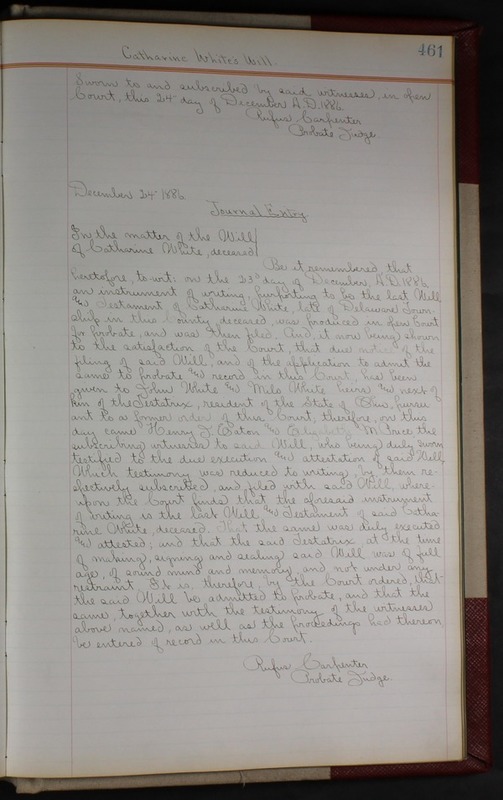 Catharine White's Will.
461
Sworn to and subscribed by said witnesses, in open
Court, this 24" day of December A.D. 1886.
Rufus Carpenter
Probate Judge.
December 24" 1886
Journal Entry
In the matter of the Will
of Catharine White, deceased
Be it remembered that
heretofore, to-wit: on the 23d day of December, A.D. 1886
an instrument of writing, purporting to be the last Will
and Testament of Catharine White, late of Delaware Town-
ship in this County deceased, was produced in open Court
for probate, and was then filed. And, it now being shown
to the satisfaction of the Court, that due notice of the
filing of said Will, and of the application to admit the
same to probate and record in this Court, has been
given to John White and Milo White, heirs and next of
kin of the Testatrix, resident of the State of Ohio, pursu-
ant to a former order of this Court, therefore, on this
day came Henry Eaton and Elizabeth M. Price the
subscribing witnesses to said Will, who being duly sworn
testified to the due execution and attestation of said Will,
Which testimony was reduced to writing, by them re-
spectively subscribed, and filed with said Will, where-
upon the Court finds that the aforesaid instrument
of writing is the last Will and Testament of said Catha-
rine White, deceased. That the same was duly executed
and attested; and that the said Testatrix at the time
of making, signing and sealing said Will was of full
age, of sound mind and memory, and not under any
restraint. It is, therefore, by the Court ordered, that
the said Will be admitted to probate, and that the
same, together with the testimony of the witnesses
above named, as well as the proceedings had thereon
be entered of record in this Court.
Rufus Carpenter
Probate Judge.